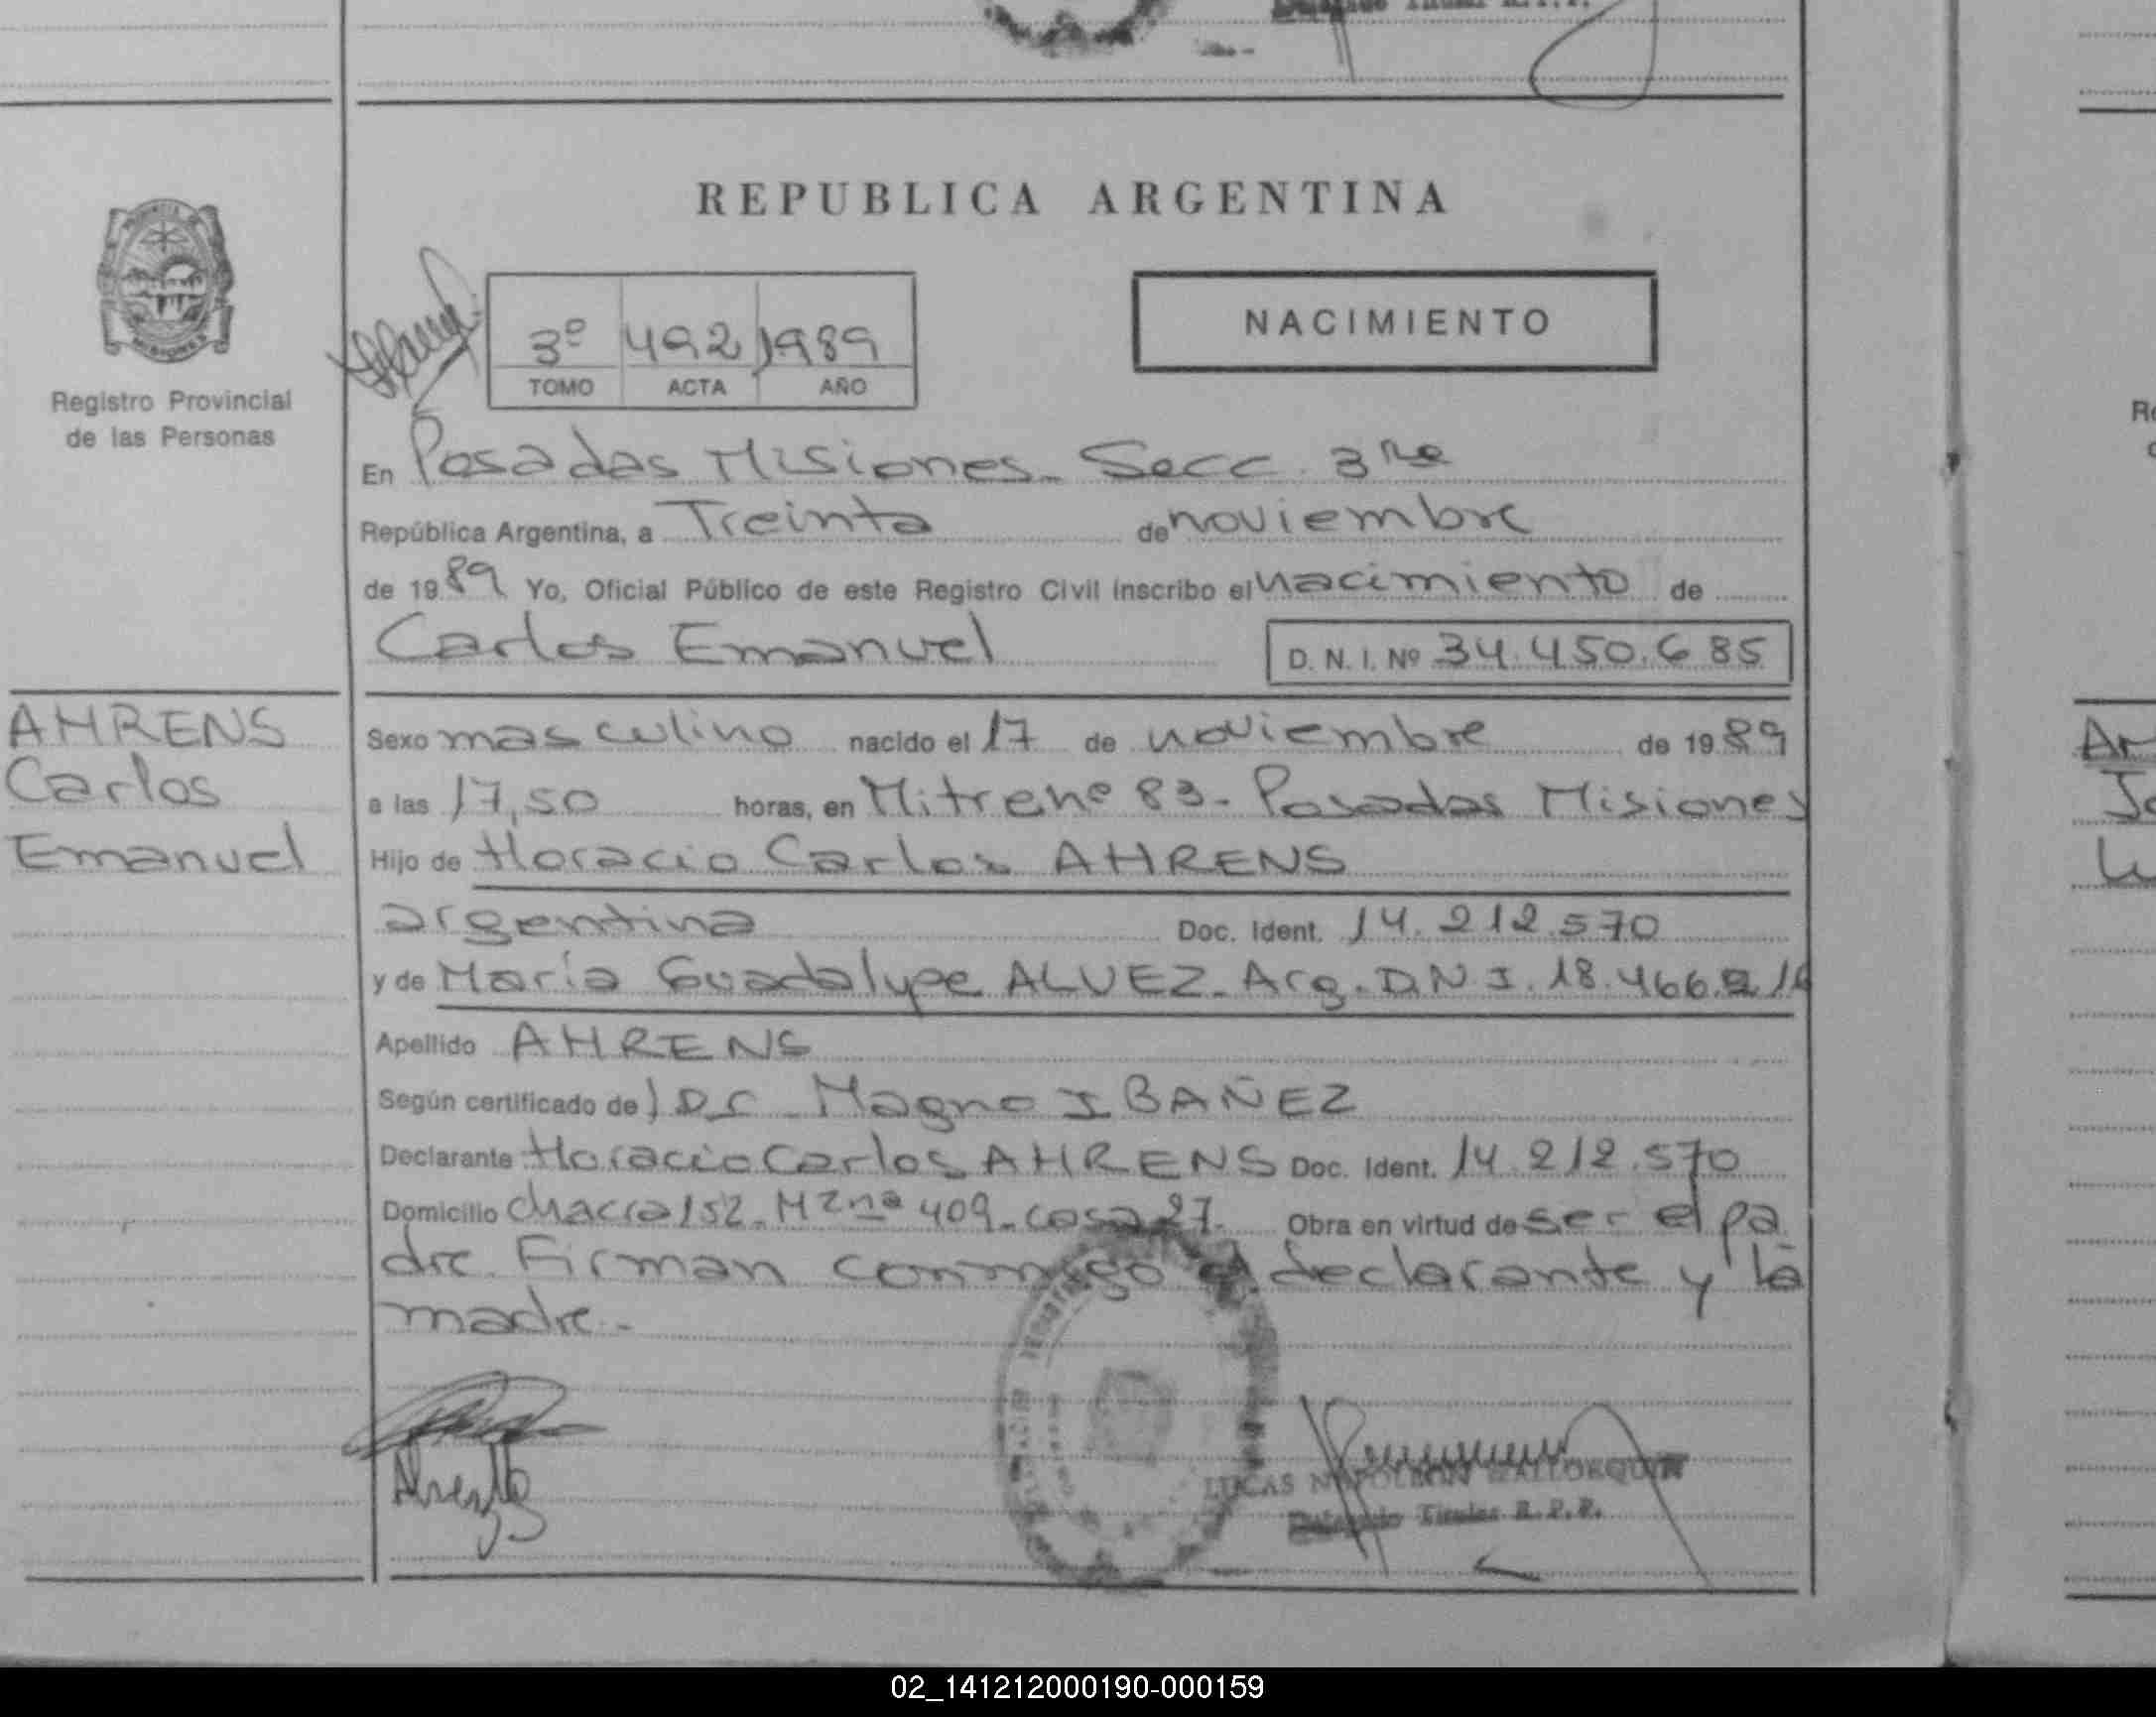 REPUBLICA ARGENTINA
NACIMIENTO
3º 492 1989
TOMO ACTA AÑO
Registro Provincial
de las Personas
En Posadas Misiones. Secc. 3ra
República Argentina, a Treinta de noviembre
de 1989 Yo, Oficial Público de este Registro Civil inscribo el nacimiento de
Carlos Emanuel D. N. I. Nº 34.450.685
AHRENS
Carlos
Emanuel
Sexo masculino nacido el 17 de noviembre de 1989
a las 17,50 horas, en Mitre nº 83 - Posadas Misiones
Hijo de Horacio Carlos AHRENS
argentina Doc. Ident. 14.212.570
y de María Guadalupe ALVEZ. Arg. D.N.I. 18.466.216
Apellido AHRENS
Según certificado de) Dr. Magno IBAÑEZ
Declarante Horacio Carlos AHRENS Doc. Ident. 14.212.570
Domicilio chacra 152. Mzna 409. casa 27. Obra en virtud de ser el pa
dre. Firman conmigo el declarante y la
madre.-
LUCAS NAPOLEON MALLORQUIN
Delegado Titular R. P. P.
02_141212000190-000159